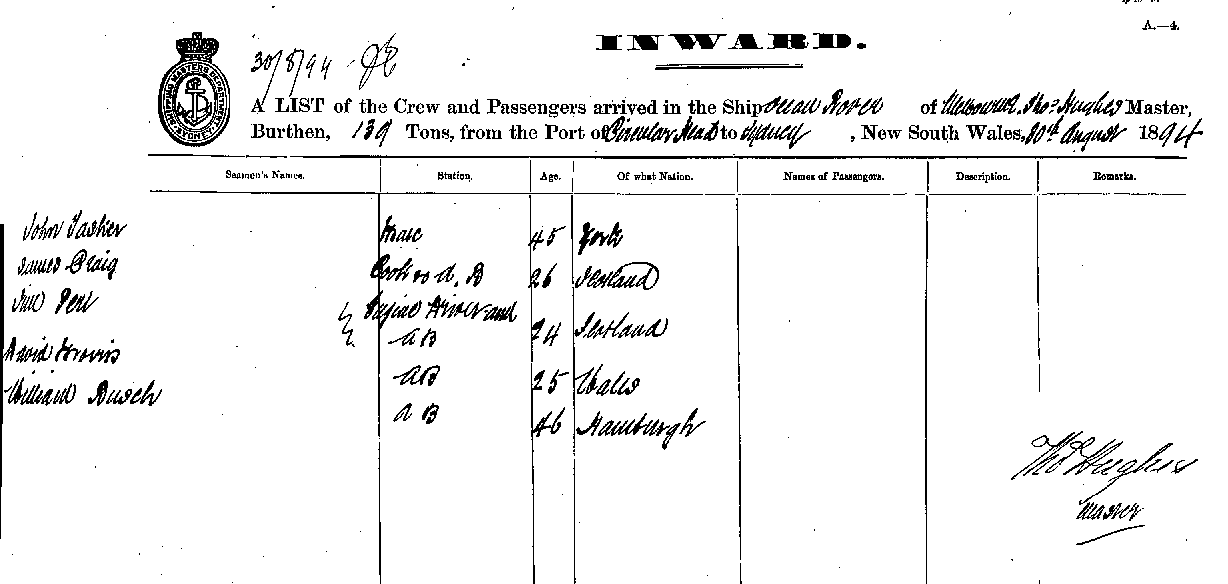 A.—4.
30/8/94
INWARD.
SHIPPING MASTERS DEPARTMENT SYDNEY
A LIST of the Crew and Passengers arrived in the Ship Ocean Rover of Melbourne, Thos Hughes Master,
Burthen, 139 Tons, from the Port of Circular Head to Sydney, New South Wales, 30th August 1894
Seamen's Names. Station. Age. Of what Nation. Names of Passengers. Description. Remarks.
John Tasker Mate 45 York
James Craig Cook & A.B 26 Scotland
Driver and
AB 24 Scotland
David AB 25 Wales
William Busch AB 46 Hamburgh
Thos Hughes
Master